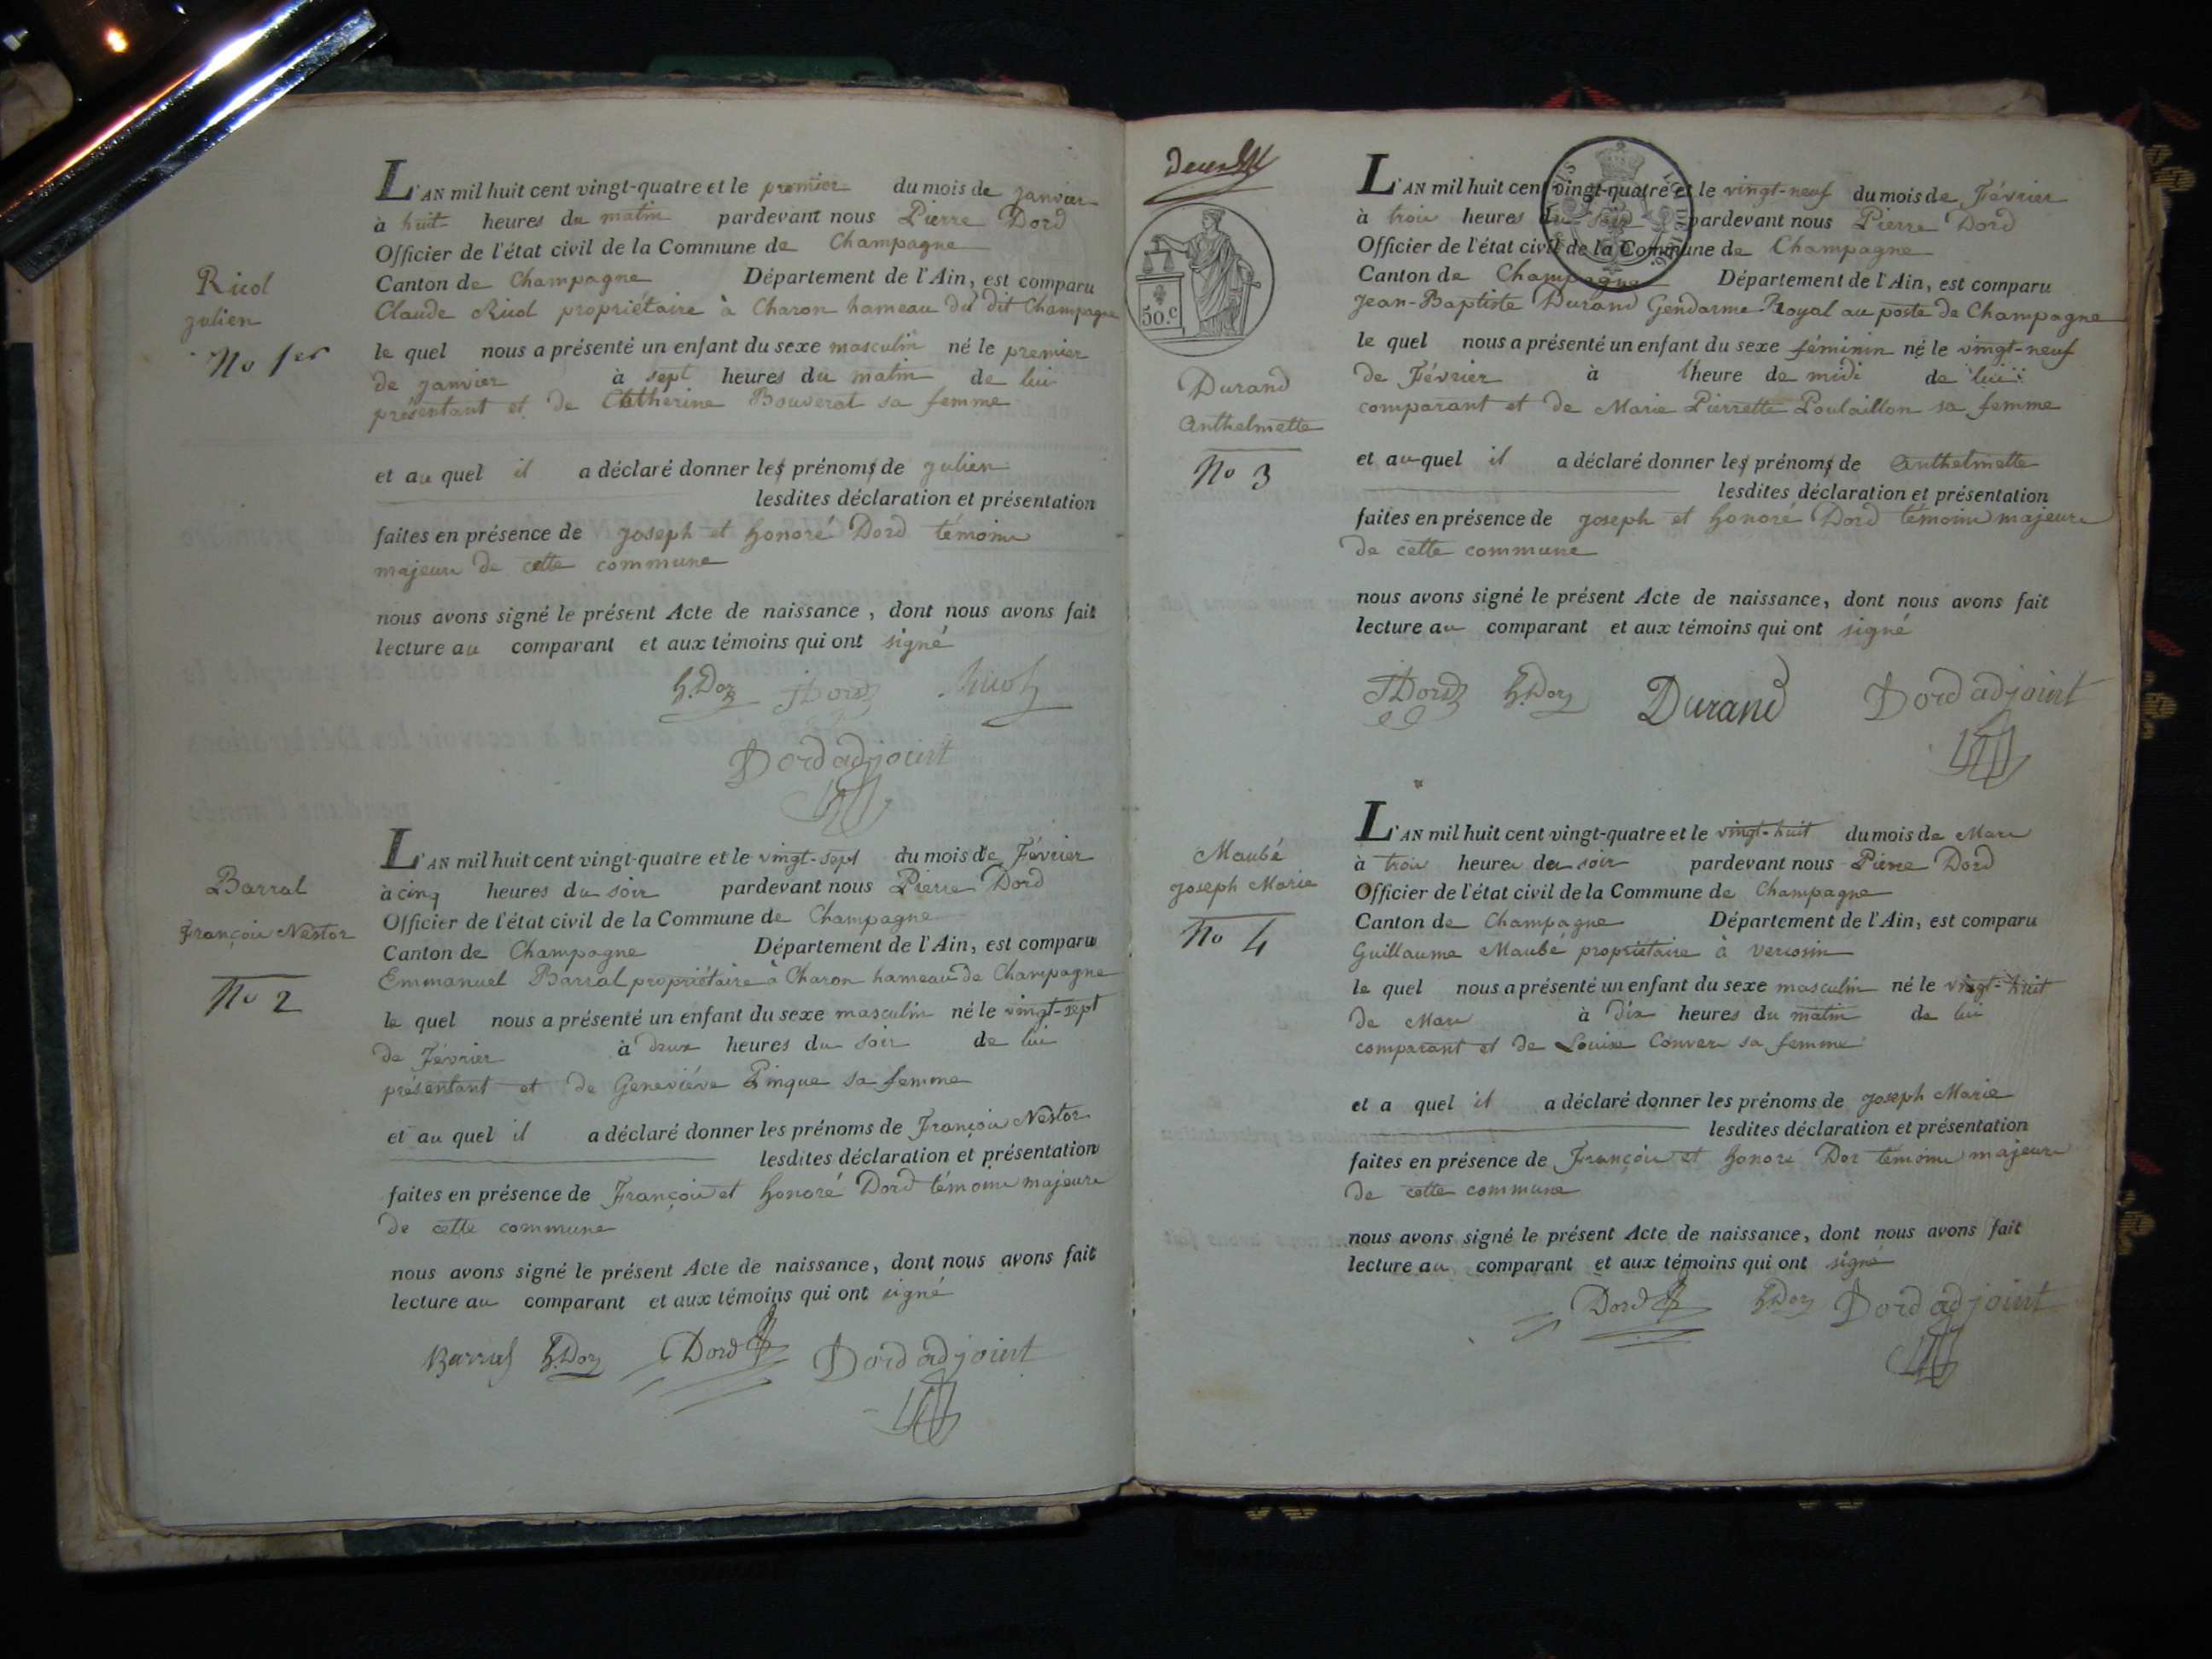 Ricol
Julien
No 1er
L'AN mil huit cent vingt-quatre et le premier du mois de janvier
à huit heures du matin pardevant nous Pierre Dord
Officier de l'état civil de la Commune de Champagne
Canton de Champagne Département de l'Ain, est comparu
Claude Ricol propriétaire à Charon hameau du dit Champagne
le quel nous a présenté un enfant du sexe masculin né le premier
de janvier à sept heures du matin de lui
présentant et de Catherine Bouverat sa femme
et au quel il a déclaré donner les prénoms de julien
lesdites déclaration et présentation
faites en présence de joseph et honoré Dord témoins
majeurs de cette commune
nous avons signé le présent Acte de naissance, dont nous avons fait
lecture au comparant et aux témoins qui ont signé
h.Dor JDord Ricol
Dord adjoint
Barral
François Nestor
No 2
L'AN mil huit cent vingt-quatre et le vingt-sept du mois de Février
à cinq heures du soir pardevant nous Pierre Dord
Officier de l'état civil de la Commune de Champagne
Canton de Champagne Département de l'Ain, est comparu
Emmanuel Barral propriétaire à Charon hameau de Champagne
le quel nous a présenté un enfant du sexe masculin né le vingt-sept
de Février à deux heures du soir de lui
présentant et de Geneviéve Pinque sa femme
et au quel il a déclaré donner les prénoms de François Nestor
lesdites déclaration et présentation
faites en présence de François et honoré Dord témoins majeurs
de cette commune
nous avons signé le présent Acte de naissance, dont nous avons fait
lecture au comparant et aux témoins qui ont signé
Barral h.Dor Dord Dord adjoint
50.c
Durand
Anthelmette
No 3
L'AN mil huit cent vingt-quatre et le vingt-neuf du mois de Février
à trois heures du soir pardevant nous Pierre Dord
Officier de l'état civil de la Commune de Champagne
Canton de Champagne Département de l'Ain, est comparu
Jean-Baptiste Durand Gendarme Royal au poste de Champagne
le quel nous a présenté un enfant du sexe féminin né le vingt-neuf
de Février à l'heure de midi de lui
comparant et de Marie Pierrette Poulaillon sa femme
et au quel il a déclaré donner les prénoms de Anthelmette
lesdites déclaration et présentation
faites en présence de joseph et honoré Dord témoins majeurs
de cette commune
nous avons signé le présent Acte de naissance, dont nous avons fait
lecture au comparant et aux témoins qui ont signé
JDord h.Dor Durand Dord adjoint
Maubé
joseph Marie
No 4
L'AN mil huit cent vingt-quatre et le vingt-huit du mois de Mars
à trois heures du soir pardevant nous Pierre Dord
Officier de l'état civil de la Commune de Champagne
Canton de Champagne Département de l'Ain, est comparu
Guillaume Maubé propriétaire à Vercosin
le quel nous a présenté un enfant du sexe masculin né le vingt-huit
de Mars à dix heures du matin de lui
comparant et de Louise Convers sa femme
et a quel il a déclaré donner les prénoms de joseph Marie
lesdites déclaration et présentation
faites en présence de François et honoré Dor témoins majeurs
de cette commune
nous avons signé le présent Acte de naissance, dont nous avons fait
lecture au comparant et aux témoins qui ont signé
Dord h.Dor Dord adjoint